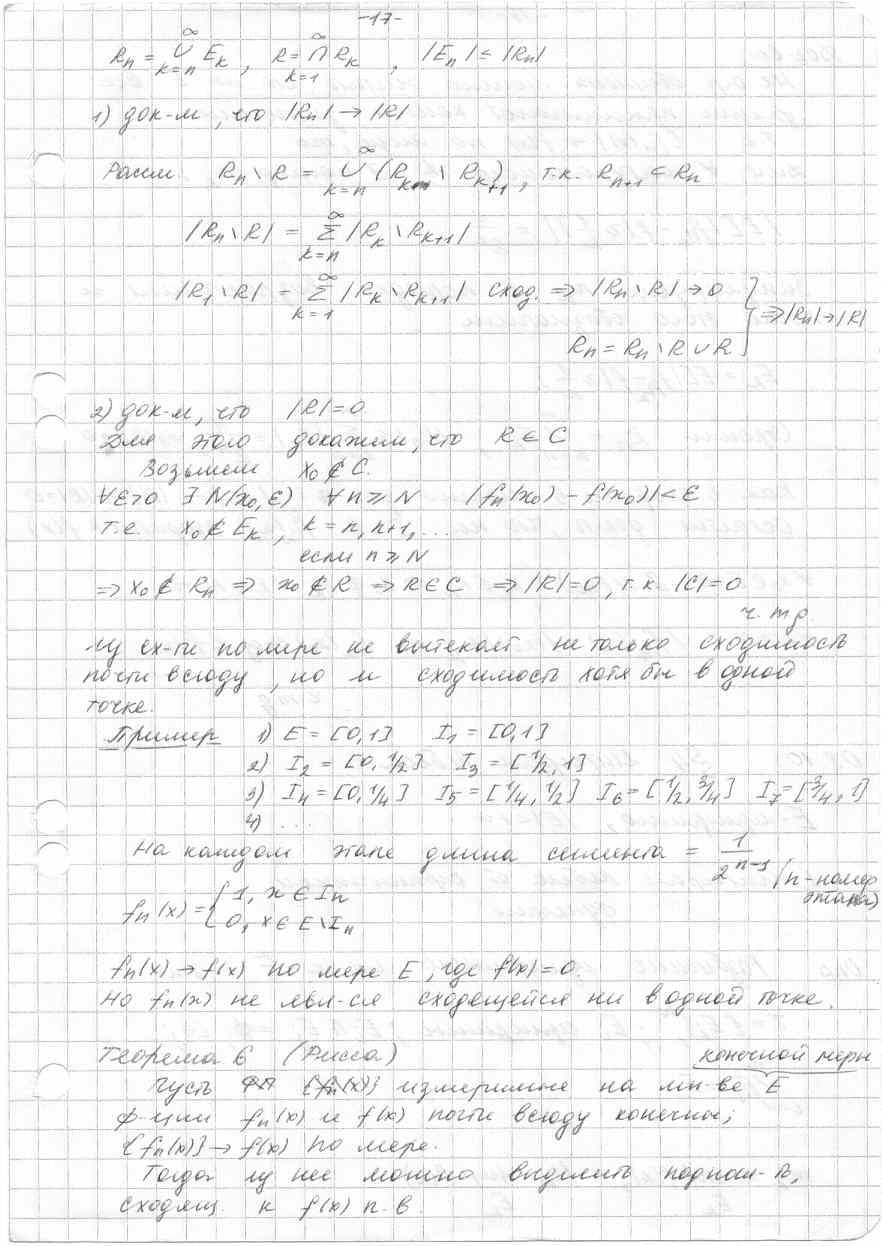 -17-
Rₙ = ∪_{k=n}^∞ E_k, R = ∩_{k=1}^∞ R_k, |Eₙ| ≤ |Rₙ|
1) док-м, что |Rₙ| → |R|
Рассм. Rₙ \ R = ∪_{k=n}^∞ (R_k \ R_{k+1}), т.к. R_{n+1} ⊂ Rₙ
|Rₙ \ R| = ∑_{k=n}^∞ |R_k \ R_{k+1}|
|R₁ \ R| = ∑_{k=1}^∞ |R_k \ R_{k+1}| сход. ⇒ |Rₙ \ R| → 0
Rₙ = Rₙ \ R ∪ R } ⇒ |Rₙ| → |R|
2) док-м, что |R| = 0.
Для этого докажем, что R ∈ C
Возьмем x₀ ∉ C.
∀ε>0 ∃ N(x₀, ε) ∀n ≥ N |fₙ(x₀) - f(x₀)| < ε
т.е. x₀ ∉ E_k, k = n, n+1, ...
если n ≥ N
⇒ x₀ ∉ Rₙ ⇒ x₀ ∉ R ⇒ R ∈ C ⇒ |R| = 0, т.к. |C| = 0
ч.т.д.
Из сх-ти по мере не вытекает не только сходимость
почти всюду, но и сходимость хотя бы в одной
точке.
Пример 1) E = [0,1] I₁ = [0,1]
2) I₂ = [0, 1/2] I₃ = [1/2, 1]
3) I₄ = [0, 1/4] I₅ = [1/4, 1/2] I₆ = [1/2, 3/4] I₇ = [3/4, 1]
4) ...
На каждом этапе длина сегмента = 1/2^{n-1} (n-номер
этапа)
fₙ(x) = { 1, x ∈ Iₙ
0, x ∈ E \ Iₙ
fₙ(x) → f(x) по мере E, где f(x) = 0.
Но fₙ(x) не явл-ся сходящейся ни в одной точке.
Теорема 6 (Рисса) конечной меры
Пусть {fₙ(x)} измеримые на мн-ве E
ф-ции fₙ(x) и f(x) почти всюду конечны;
{fₙ(x)} → f(x) по мере.
Тогда из нее можно выделить
сходящ. к f(x) п.в.